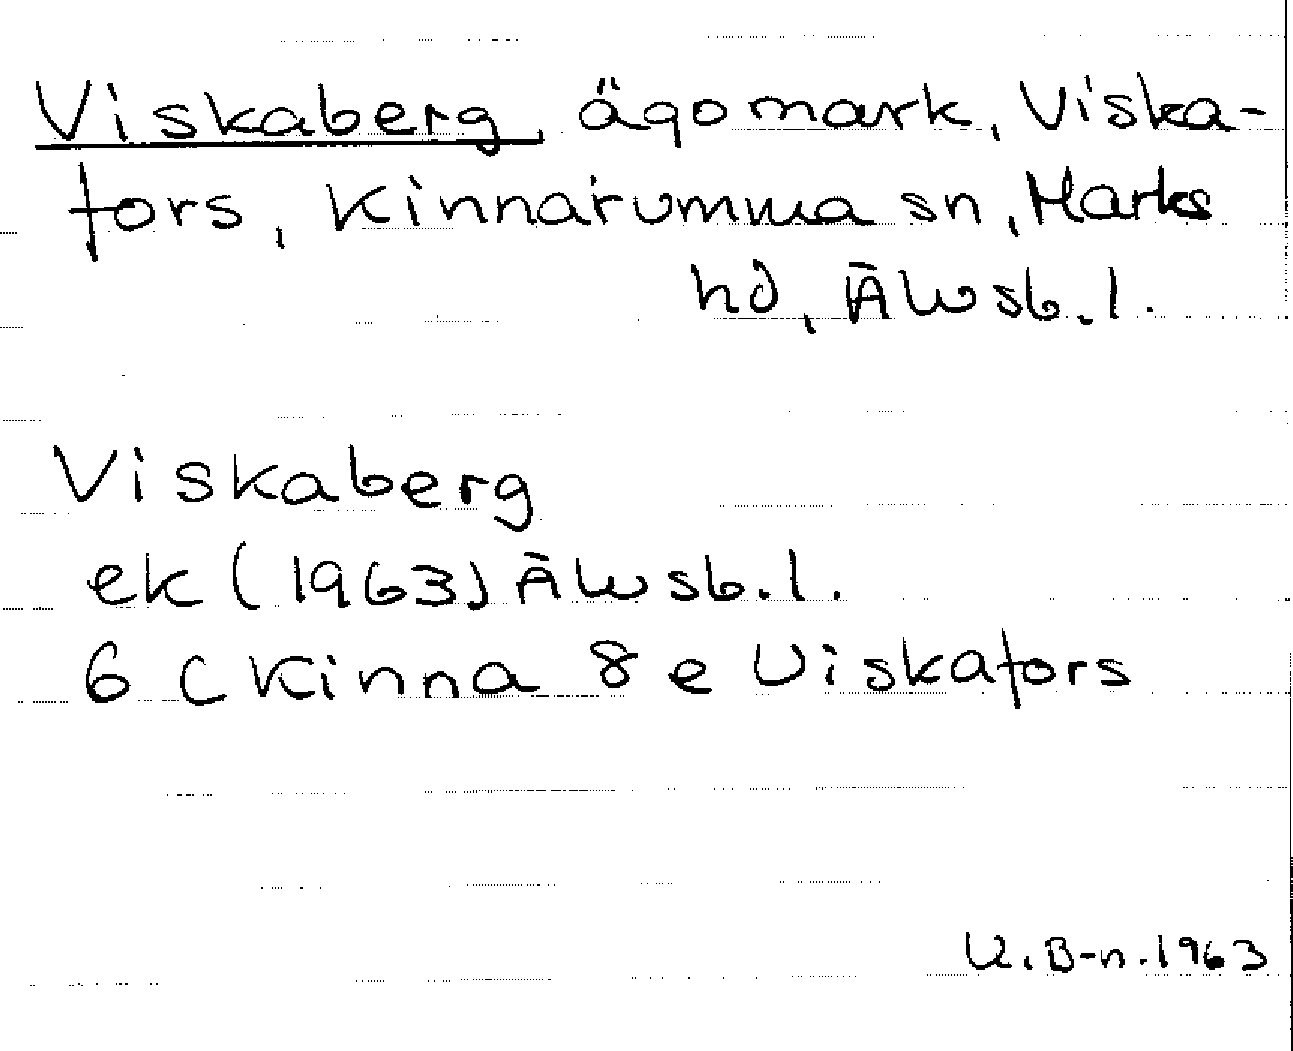 Viskaberg, ägomark, Viska-
fors, Kinnarumma sn, Marks
hd, Älvsb.l.
Viskaberg
ek (1963) Älvsb.l.
6 C Kinna 8 e Viskafors
U.B-n.1963